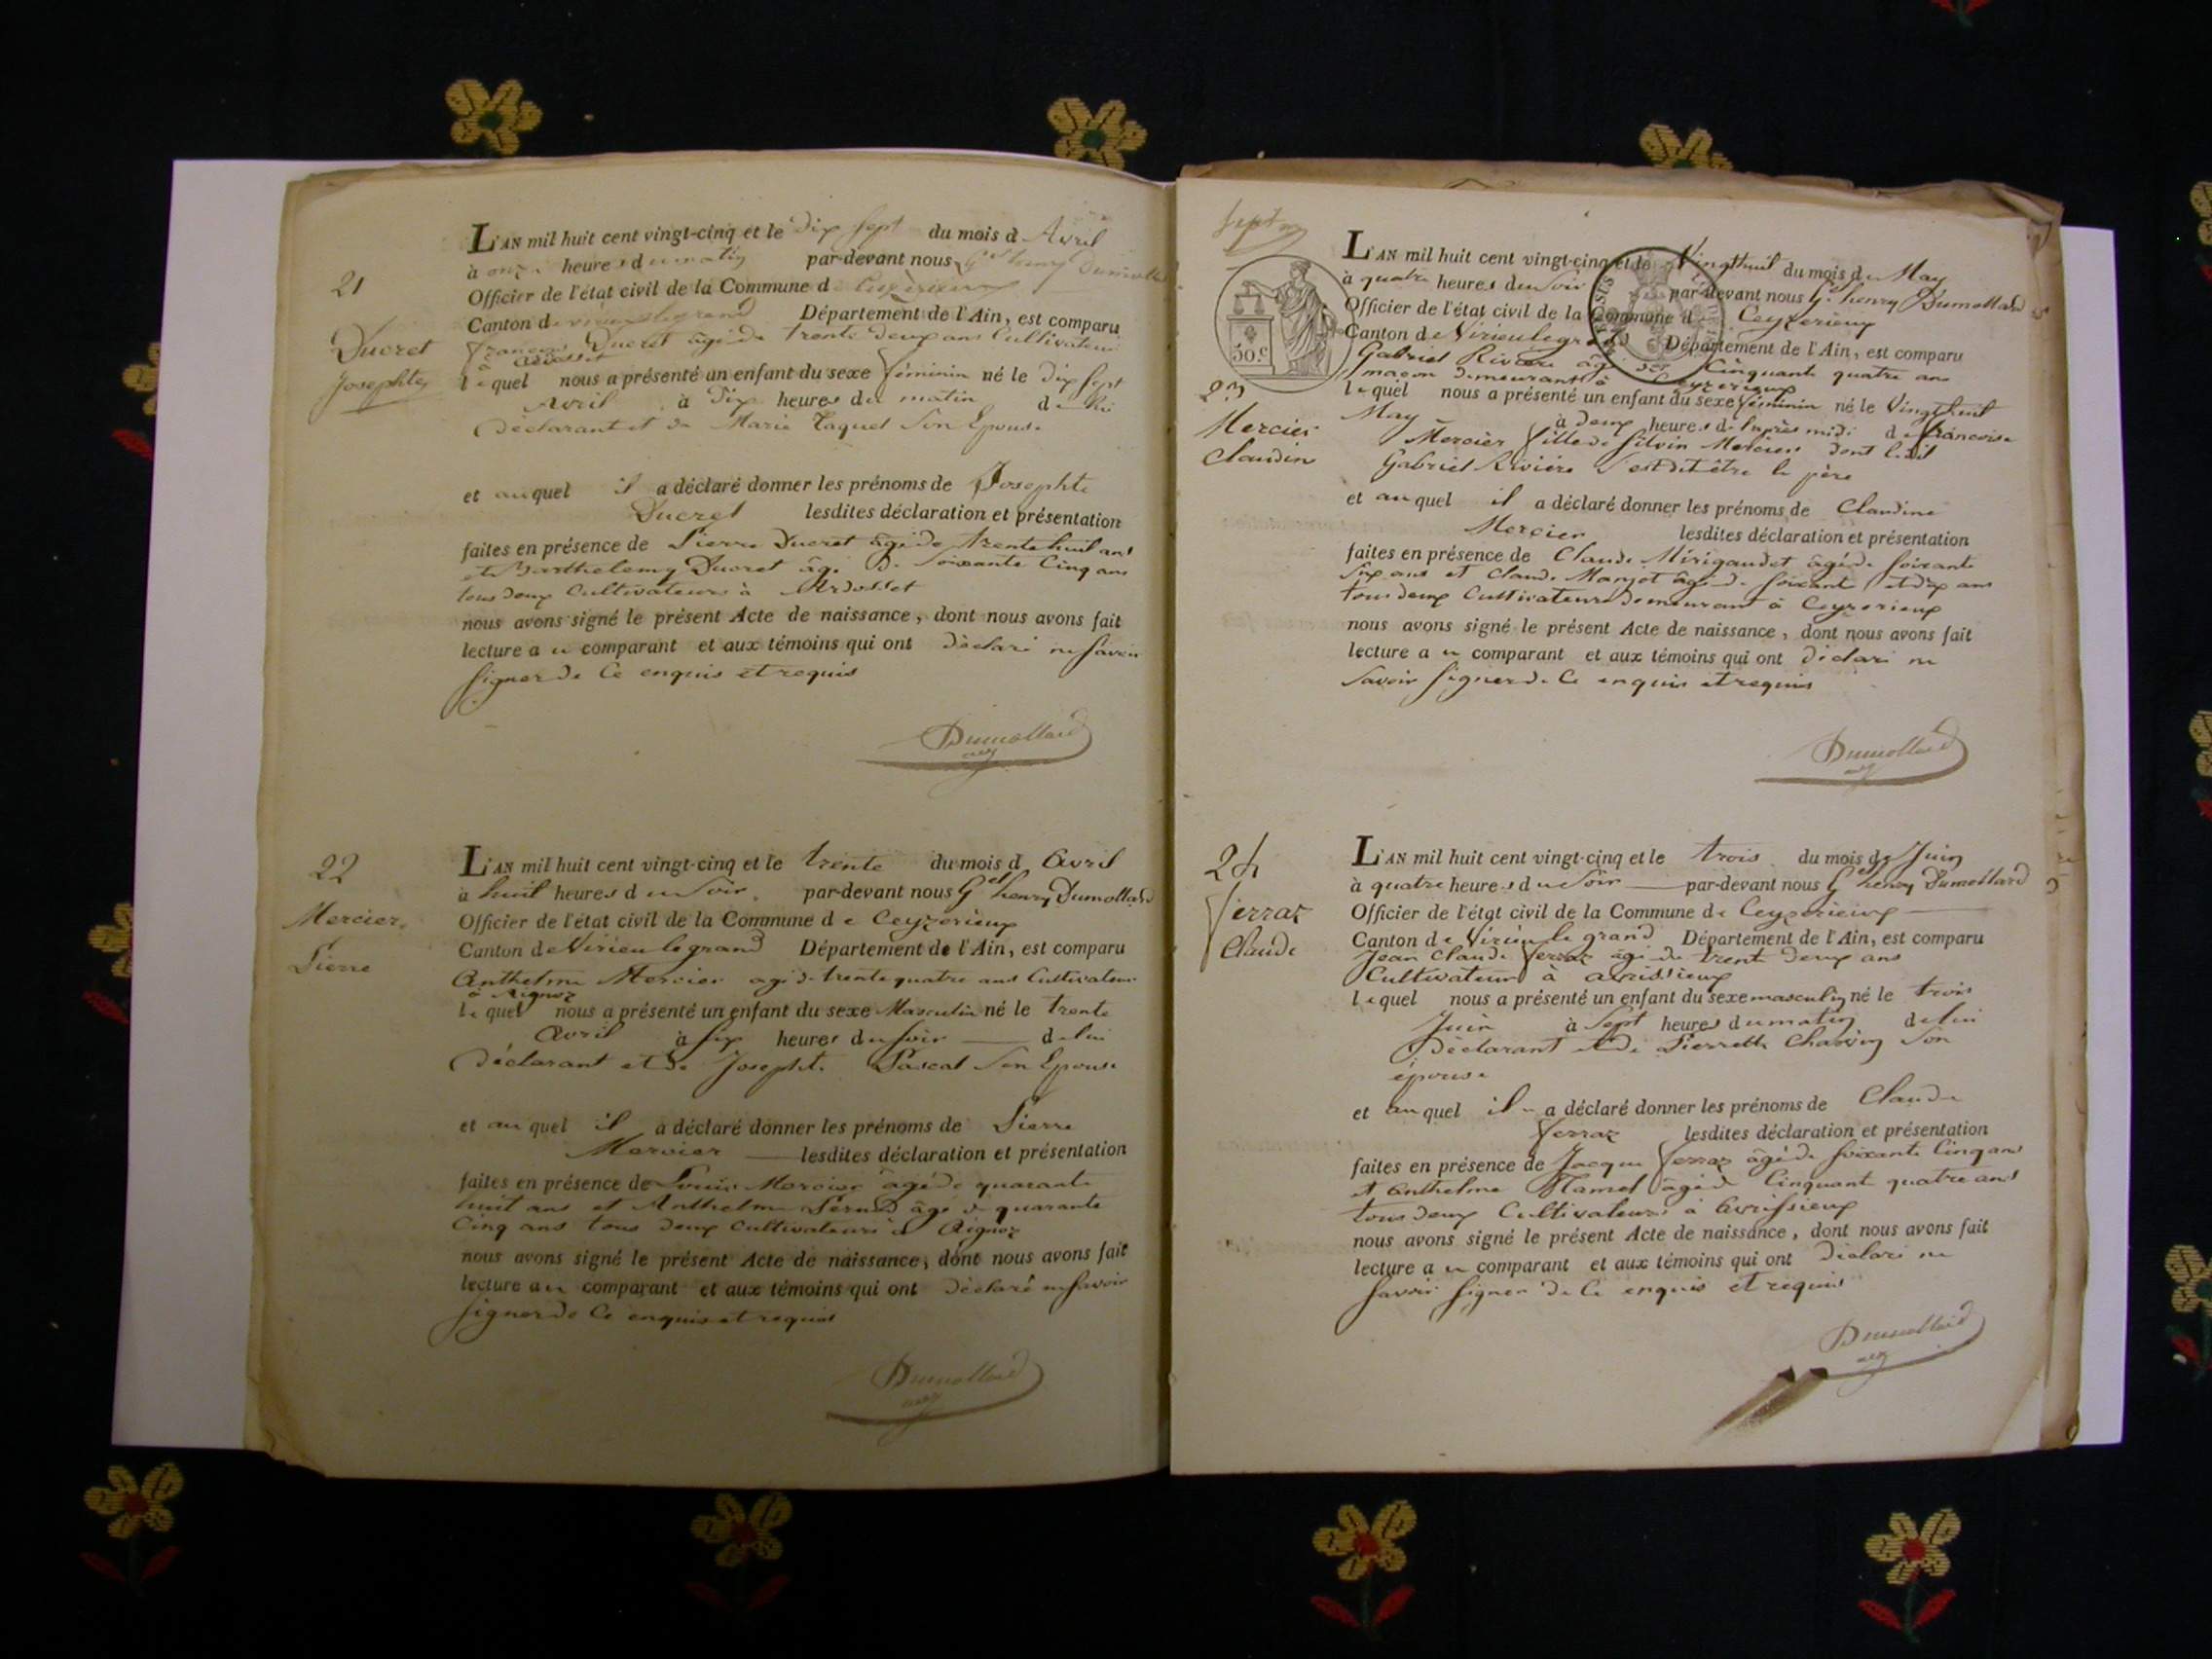 21
Ducret
Josephte
L'AN mil huit cent vingt-cinq et le dix sept du mois d Avril
à onze heures du matin par-devant nous Gel henry Dumollard
Officier de l'état civil de la Commune de Ceyzerieux
Canton de virieu le grand Département de l'Ain, est comparu
françois Ducret âgé de trente deux ans Cultivateur
à Ardosset
lequel nous a présenté un enfant du sexe féminin né le Dix Sept
Avril à Dix heures du matin de lui
Déclarant et de Marie Son Epouse
et auquel il a déclaré donner les prénoms de Josephte
Ducret lesdites déclaration et présentation
faites en présence de Pierre Ducret âgé de trente huit ans
et Barthelemy Ducret âgé de Soixante Cinq ans
tous deux Cultivateurs à Ardosset
nous avons signé le présent Acte de naissance, dont nous avons fait
lecture au comparant et aux témoins qui ont déclaré ne Savoir
Signer de Ce enquis et requis
Dumollard
22
Mercier
Pierre
L'AN mil huit cent vingt-cinq et le trente du mois d Avril
à huit heures du Soir par-devant nous Gel henry Dumollard
Officier de l'état civil de la Commune de Ceyzerieux
Canton de Virieu le grand Département de l'Ain, est comparu
Anthelme Mercier agé de trente quatre ans Cultivateur
à Aignoz
lequel nous a présenté un enfant du sexe Masculin né le trente
Avril à Six heures du Soir de lui
Déclarant et de Josephte Pascal Son Epouse
et auquel il a déclaré donner les prénoms de Pierre
Mercier lesdites déclaration et présentation
faites en présence de Louis Mercier âgé de quarante
huit ans et Anthelme âgé de quarante
Cinq ans tous deux Cultivateurs à Aignoz
nous avons signé le présent Acte de naissance, dont nous avons fait
lecture au comparant et aux témoins qui ont déclaré ne Savoir
Signer de Ce enquis et requis
Dumollard
50 c
23
Mercier
Claudine
L'AN mil huit cent vingt-cinq et le Vingthuit du mois de May
à quatre heures du Soir par-devant nous Gel henry Dumollard
Officier de l'état civil de la Commune de Ceyzerieux
Canton de Virieu le grand Département de l'Ain, est comparu
Gabriel Rivière âgé de Cinquante quatre ans
maçon demeurant à Ceyzerieux
lequel nous a présenté un enfant du sexe féminin né le Vingthuit
May à deux heures de laprès midi de françoise
Mercier fille de Silvin Mercier dont ledit
Gabriel Rivière S'est dit être le père
et auquel il a déclaré donner les prénoms de Claudine
Mercier lesdites déclaration et présentation
faites en présence de Claude Mirigaudet âgé de soixante
Six ans et Claude Marjot âgé de soixante et dix ans
tous deux Cultivateurs demeurant à Ceyzerieux
nous avons signé le présent Acte de naissance, dont nous avons fait
lecture au comparant et aux témoins qui ont déclaré ne
Savoir Signer de Ce enquis et requis
Dumollard
24
ferraz
Claude
L'AN mil huit cent vingt-cinq et le trois du mois de Juin
à quatre heures du Soir par-devant nous Gel henry Dumollard
Officier de l'état civil de la Commune de Ceyzerieux
Canton de Virieu le grand Département de l'Ain, est comparu
Jean Claude ferraz âgé de trente deux ans
Cultivateur à avrissieux
lequel nous a présenté un enfant du sexe masculin né le trois
Juin à Sept heures du matin de lui
Déclarant et de Pierrette Charvin Son
épouse
et auquel il a déclaré donner les prénoms de Claude
ferraz lesdites déclaration et présentation
faites en présence de Jacques ferraz âgé de soixante Cinq ans
et Anthelme âgé de Cinquante quatre ans
tous deux Cultivateurs à avrissieux
nous avons signé le présent Acte de naissance, dont nous avons fait
lecture au comparant et aux témoins qui ont déclaré ne
Savoir Signer de Ce enquis et requis
Dumollard